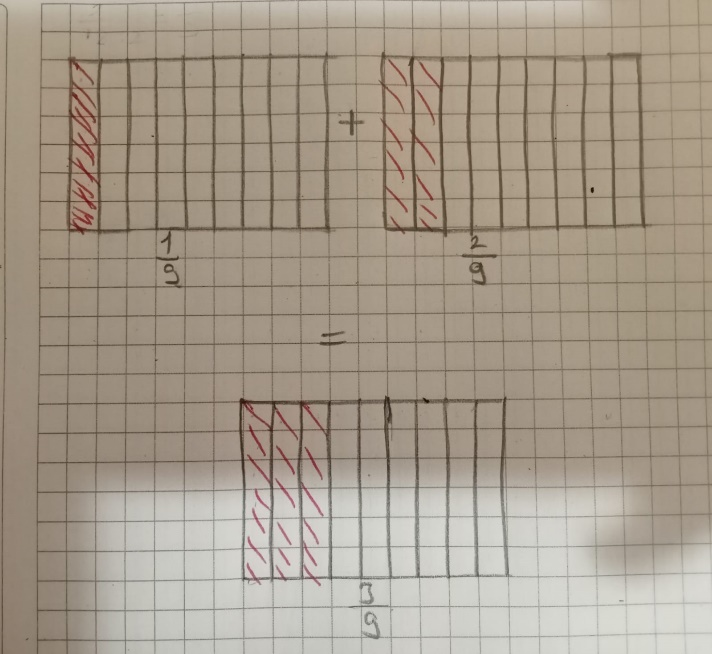 +
1/9 2/9
=
3/9